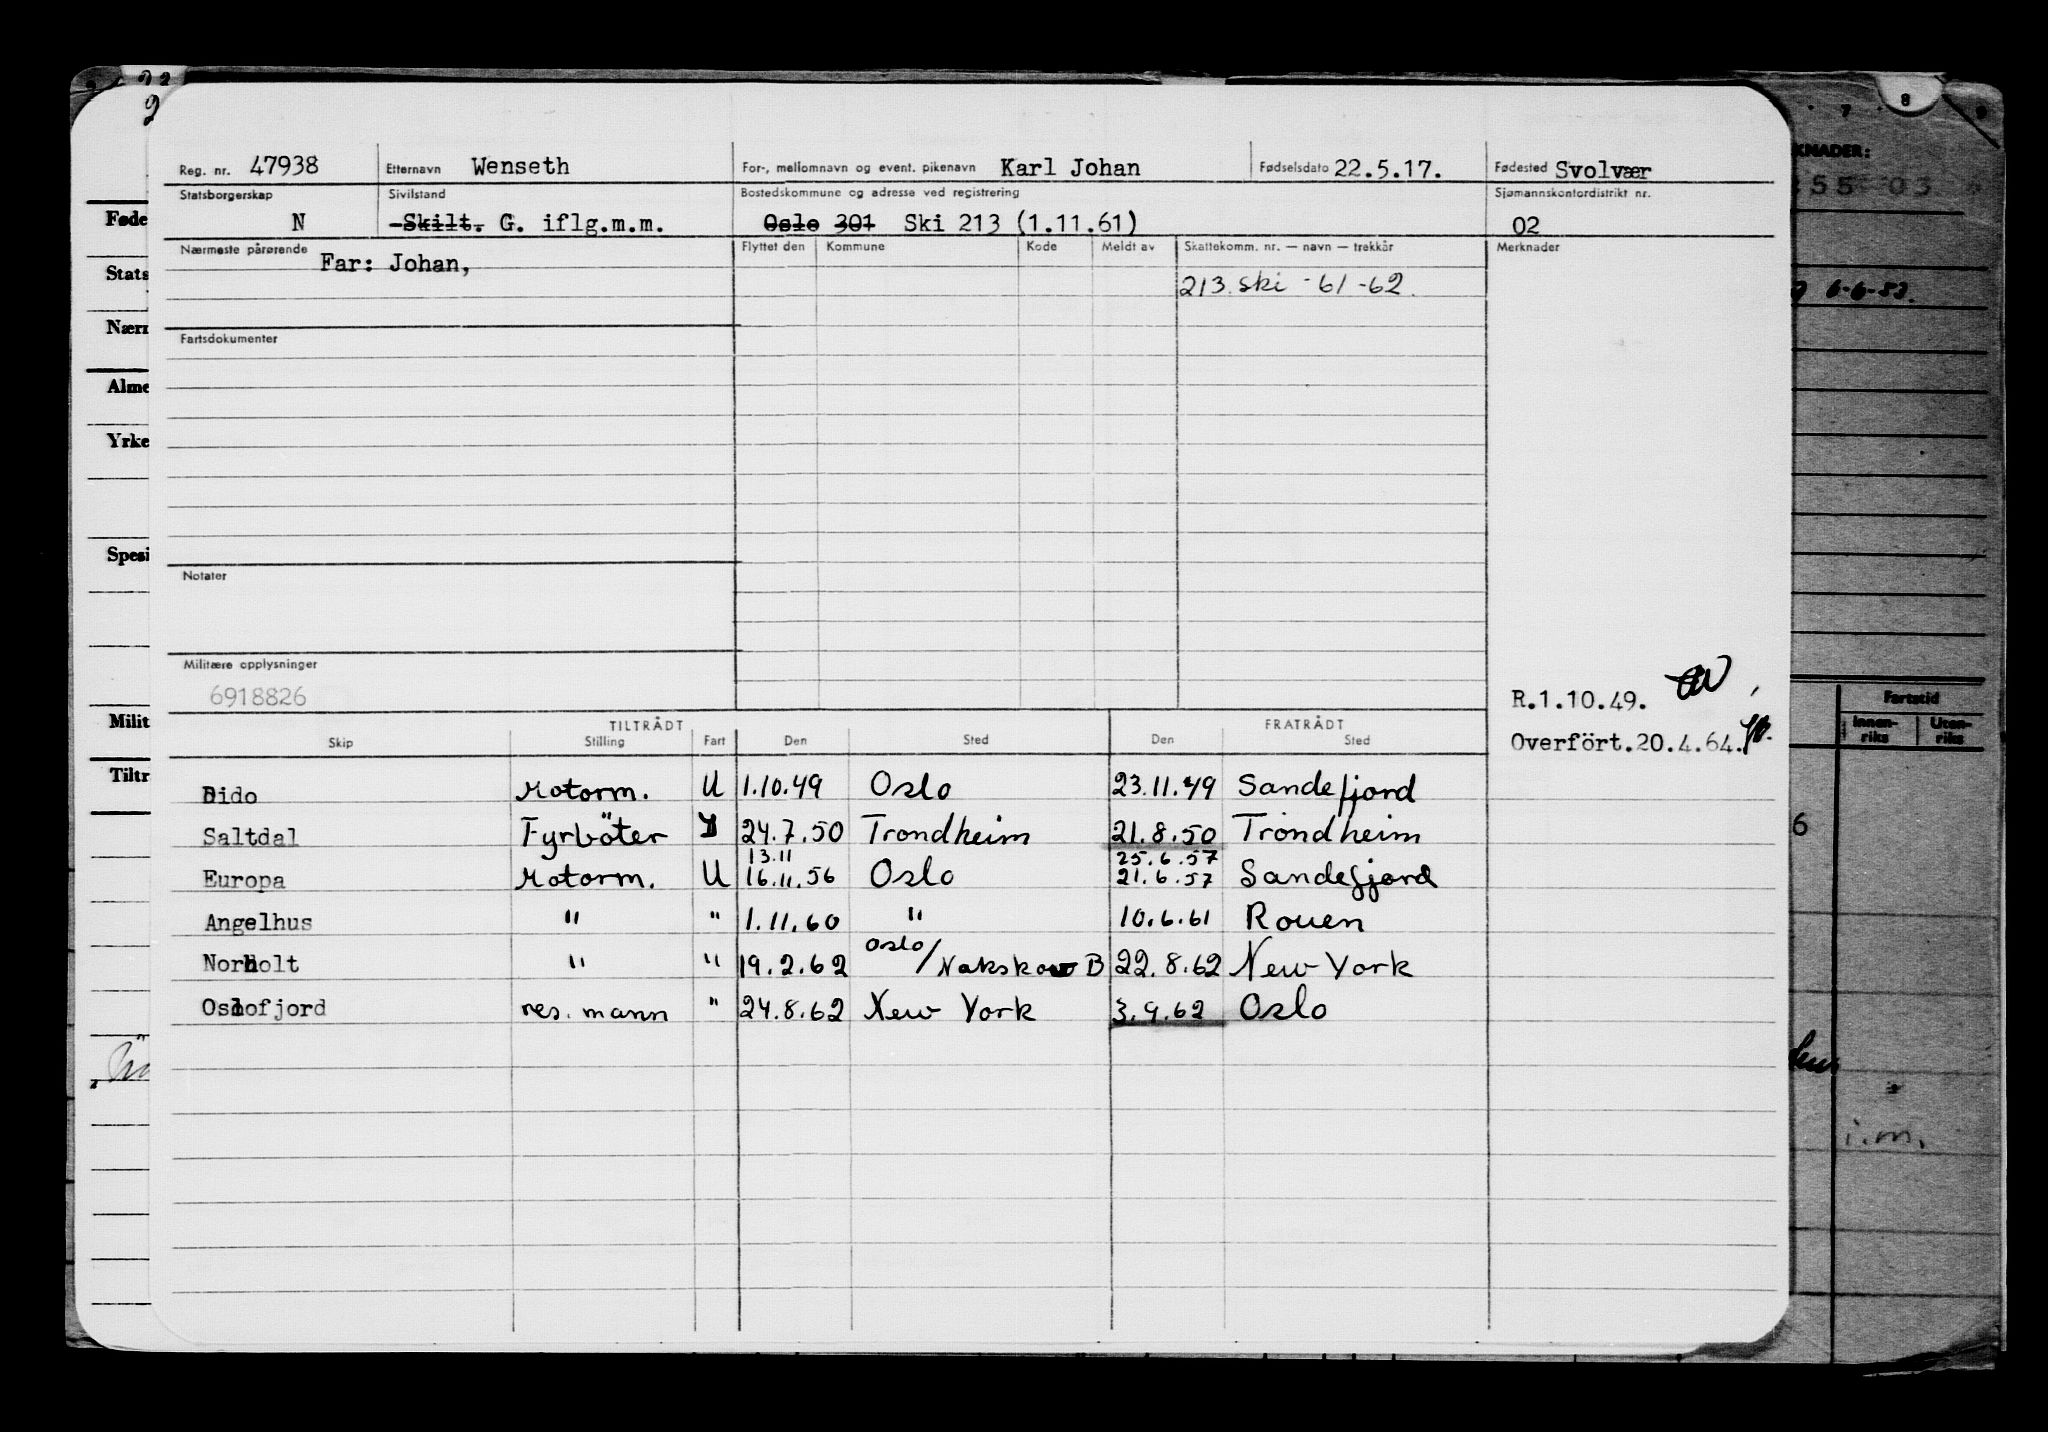 Reg. nr. 47938 Etternavn Wenseth For-, mellomnavn og event. pikenavn Karl Johan Fødselsdato 22.5.17. Fødested Svolvær
Statsborgerskap Sivilstand Bostedskommune og adresse ved registrering Sjømannskontordistrikt nr.
N Skilt. G. iflg.m.m. Oslo 301 Ski 213 (1.11.61) 02
Nærmeste pårørende Far: Johan, Flyttet den Kommune Kode Meldt av Skattekomm. nr. — navn — trekkår Merknader
213. Ski - 61 - 62.
Fartsdokumenter
Notater
Militære opplysninger
6918826
R.1.10.49.
Overfört.20.4.64.
TILTRÅDT FRATRÅDT
Skip Stilling Fart Den Sted Den Sted
Dido Motorm. U 1.10.49 Oslo 23.11.49 Sandefjord
Saltdal Fyrböter 24.7.50 Trondheim 21.8.50 Trondheim
13.11 25.6.57
Europa Motorm. U 16.11.56 Oslo 21.6.57 Sandefjord
Angelhus " " 1.11.60 " 10.6.61 Rouen
Norholt " " 19.2.62 Oslo/Nakskov B 22.8.62 New York
Oslofjord res. mann " 24.8.62 New York 3.9.62 Oslo
Føde
Stats
Nærn
Alme
Yrke
Spesi
Milit
Tiltr
7 8 9
KNADER:
55 03
6-6-53.
Fartstid
Innen-
riks
Uten-
riks
6
i.m.